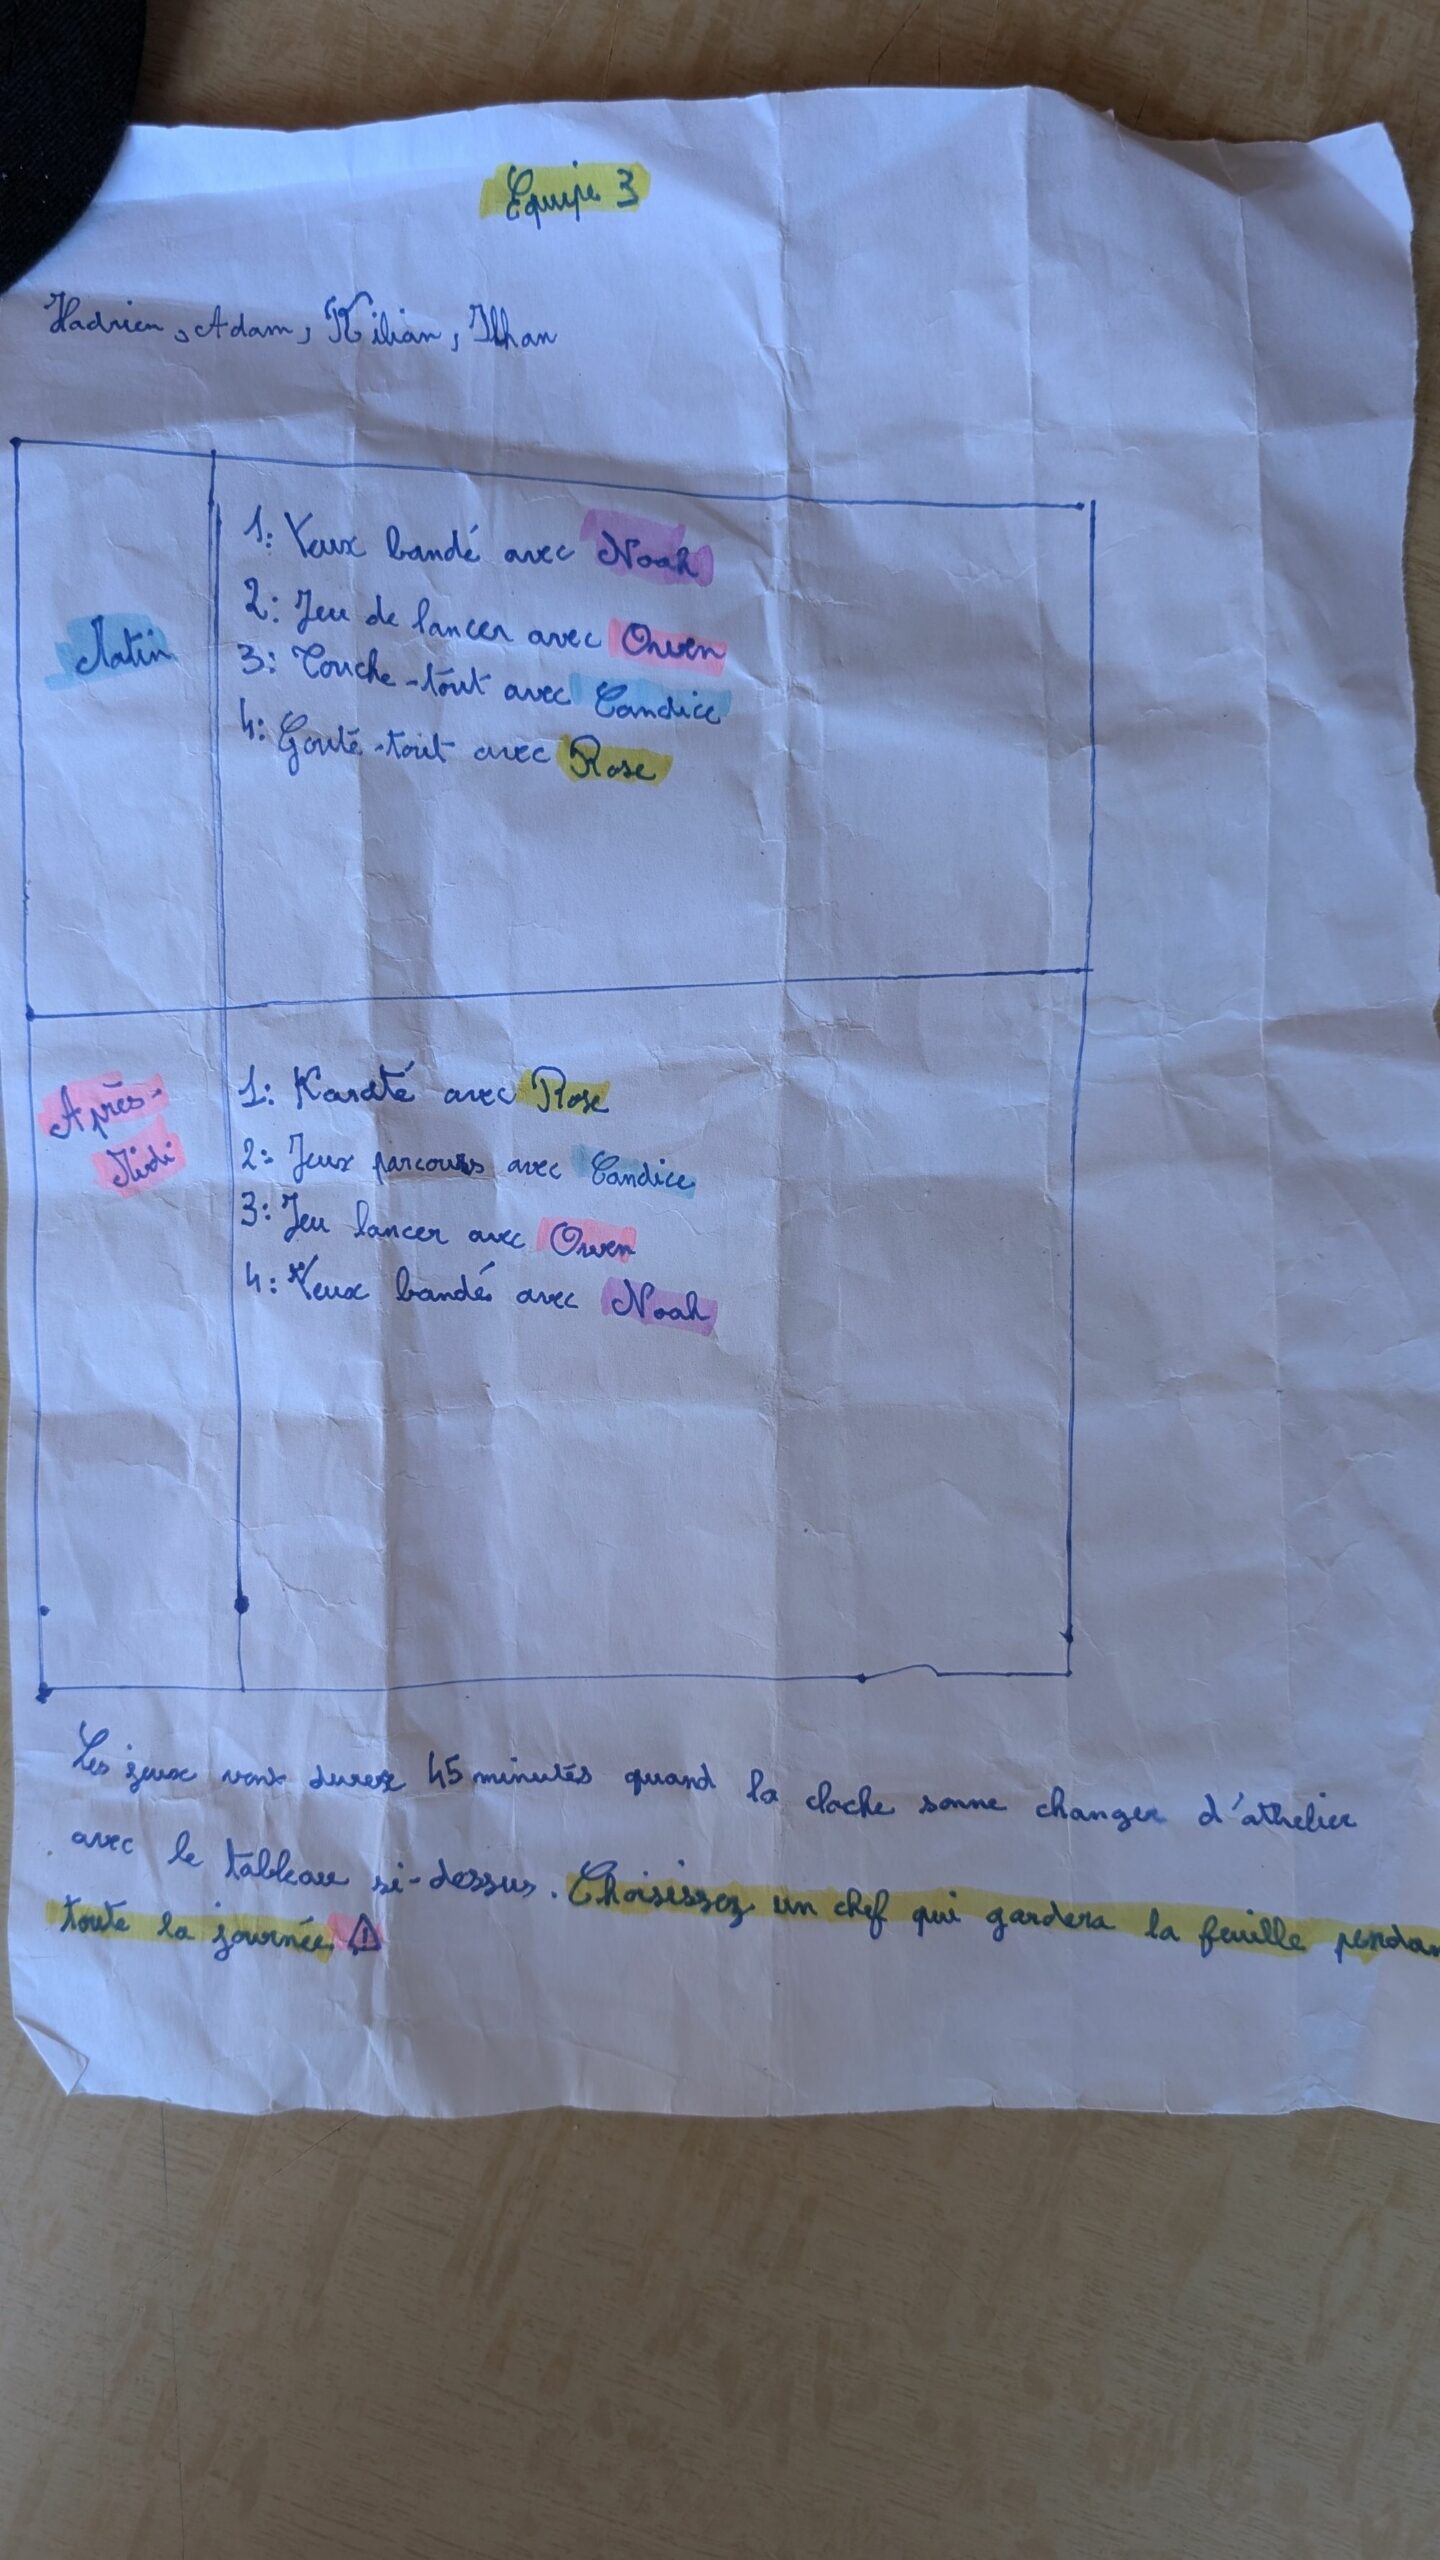 Equipe 3
Hadrien, Adam, Kilian, Ilhan
Matin
1: Yeux bandé avec Noah
2: Jeu de lancer avec Owen
3: Touche-tout avec Candice
4: Gouté-tout avec Rose
Après-
Midi
1: Karaté avec Rose
2: Jeux parcours avec Candice
3: Jeu lancer avec Owen
4: Yeux bandés avec Noah
Les jeux vont durer 45 minutes quand la cloche sonne changer d'athelier
avec le tableau si-dessus. Choisissez un chef qui gardera la feuille pendan
toute la journée ⚠